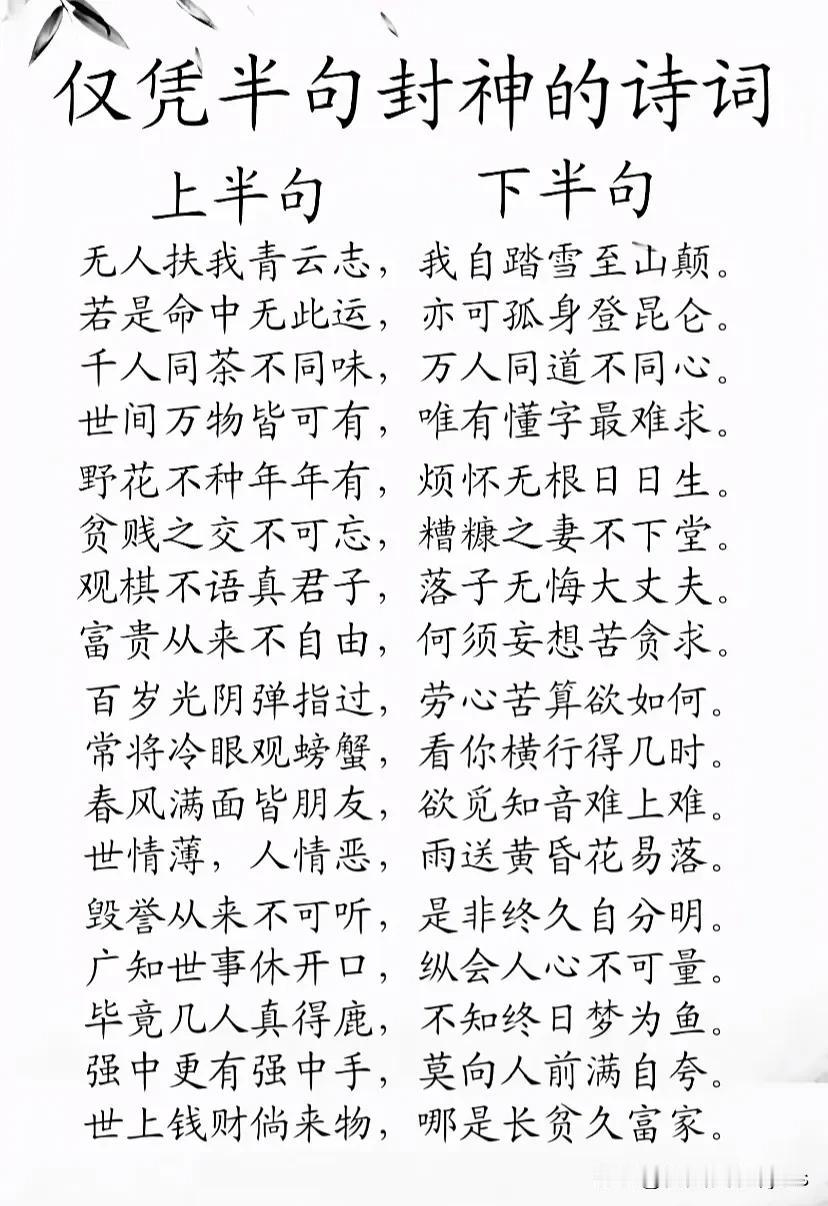 仅凭半句封神的诗词
上半句 下半句
无人扶我青云志，我自踏雪至山颠。
若是命中无此运，亦可孤身登昆仑。
千人同茶不同味，万人同道不同心。
世间万物皆可有，唯有懂字最难求。
野花不种年年有，烦怀无根日日生。
贫贱之交不可忘，糟糠之妻不下堂。
观棋不语真君子，落子无悔大丈夫。
富贵从来不自由，何须妄想苦贪求。
百岁光阴弹指过，劳心苦算欲如何。
常将冷眼观螃蟹，看你横行得几时。
春风满面皆朋友，欲觅知音难上难。
世情薄，人情恶，雨送黄昏花易落。
毁誉从来不可听，是非终久自分明。
广知世事休开口，纵会人心不可量。
毕竟几人真得鹿，不知终日梦为鱼。
强中更有强中手，莫向人前满自夸。
世上钱财倘来物，哪是长贫久富家。